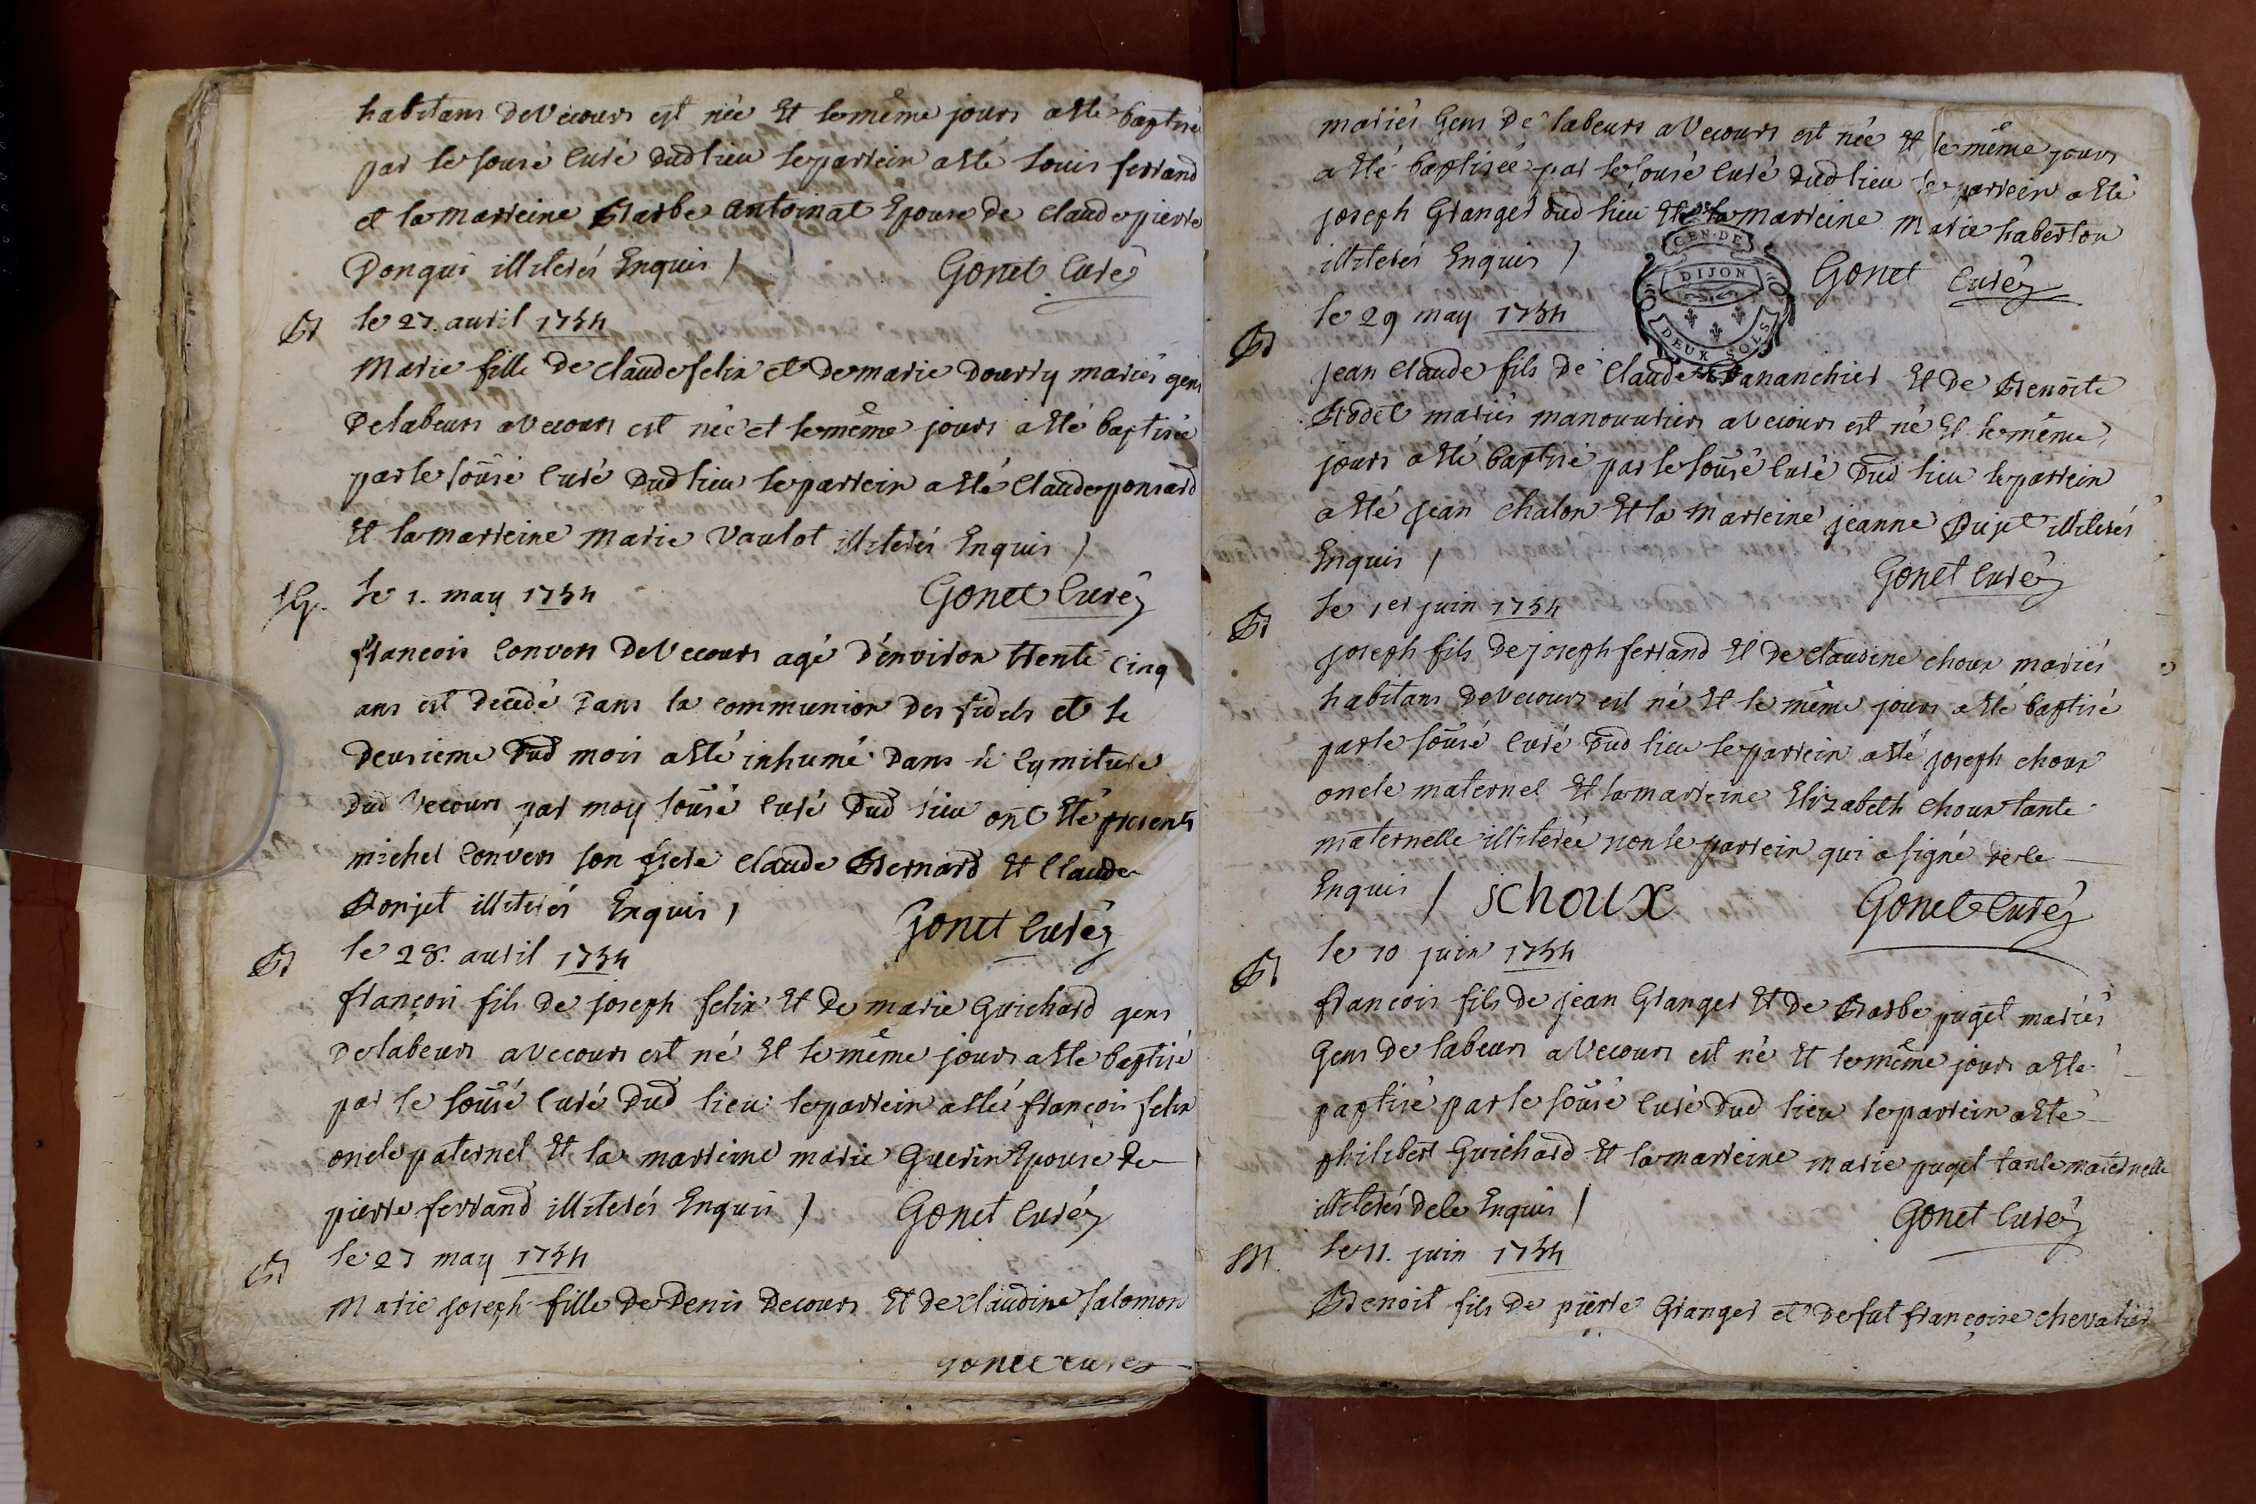 habitans de Vecours est née Et le même jours a Eté baptisé
par le sousé Curé dud lieu le parrein a Eté Louis ferrand
et la marreine Barbe antoinat Epouse de Claude pierre
Donqui illiterés Enquis / Gonet Curé
B le 27. avril 1754
Marie fille de Claude felix et de marie Dourry mariés gens
de labeurs a Vecours est née et le même jours a Eté baptisée
par le sousé Curé dud lieu le parrein a Eté Claude ponsard
Et la marreine marie Vaulot illiterés Enquis /
Sep. le 1. may 1754 Gonet Curé
françois Convers de Vecours agé d'environ trente cinq
ans est décédé dans la communion des fidels et le
deusieme dud mois a Eté inhumé dans le cymitiere
dud Vecours par moy sousé Curé dud lieu ont Eté présents
michel Convers son frere Claude Bernard Et Claude
Bonjet illiterés Enquis / Gonet Curé
B le 28. avril 1754
françois fils de joseph felix Et de marie Guichard gens
de labeurs a Vecours est né Et le même jours a Eté baptisé
par le sousé Curé dud lieu le parrein a Eté françois felix
oncle paternel Et la marreine marie Guerin Epouse de
pierre ferrand illiterés Enquis / Gonet Curé
B le 27 may 1754
Marie joseph fille de Denis Decours Et de Claudine Salomon
Gonet Curé
mariés Gens de labeurs a Vecours est née Et le même jours
a Eté baptisée par le sousé Curé dud lieu le parrein a Eté
joseph Granger dud lieu Et la marreine Marie haberlon
illiterés Enquis / Gonet Curé
GEN. DE
DIJON
DEUX SOLS
B le 29 may 1754
jean Claude fils de Claude Et de Benoite
Bodet mariés manouvriers a Vecours est né Et le même
jours a Eté baptisé par le sousé Curé dud lieu le parrein
a Eté jean chalon Et la Marreine jeanne Pujet illiterés
Enquis / Gonet Curé
B le 1er juin 1754
joseph fils de joseph ferrand Et de Claudine choux mariés
habitans de Vecours est né Et le même jours a Eté baptisé
par le sousé Curé dud lieu le parrein a Eté joseph choux
oncle maternel Et la marreine Elizabeth choux tante
maternelle illiterée non le parrein qui a signé
Enquis / jchoux Gonet Curé
B le 10 juin 1754
françois fils de jean Granger Et de Barbe puget mariés
Gens de labeurs a Vecours est né Et le même jours a Eté
paptisé par le sousé Curé dud lieu le parrein a Eté
philibert Guichard Et la marreine marie puget tante maternelle
illiterés de le Enquis / Gonet Curé
M. le 11. juin 1754
Benoit fils de pierre Granger et de fut françoise chevalier